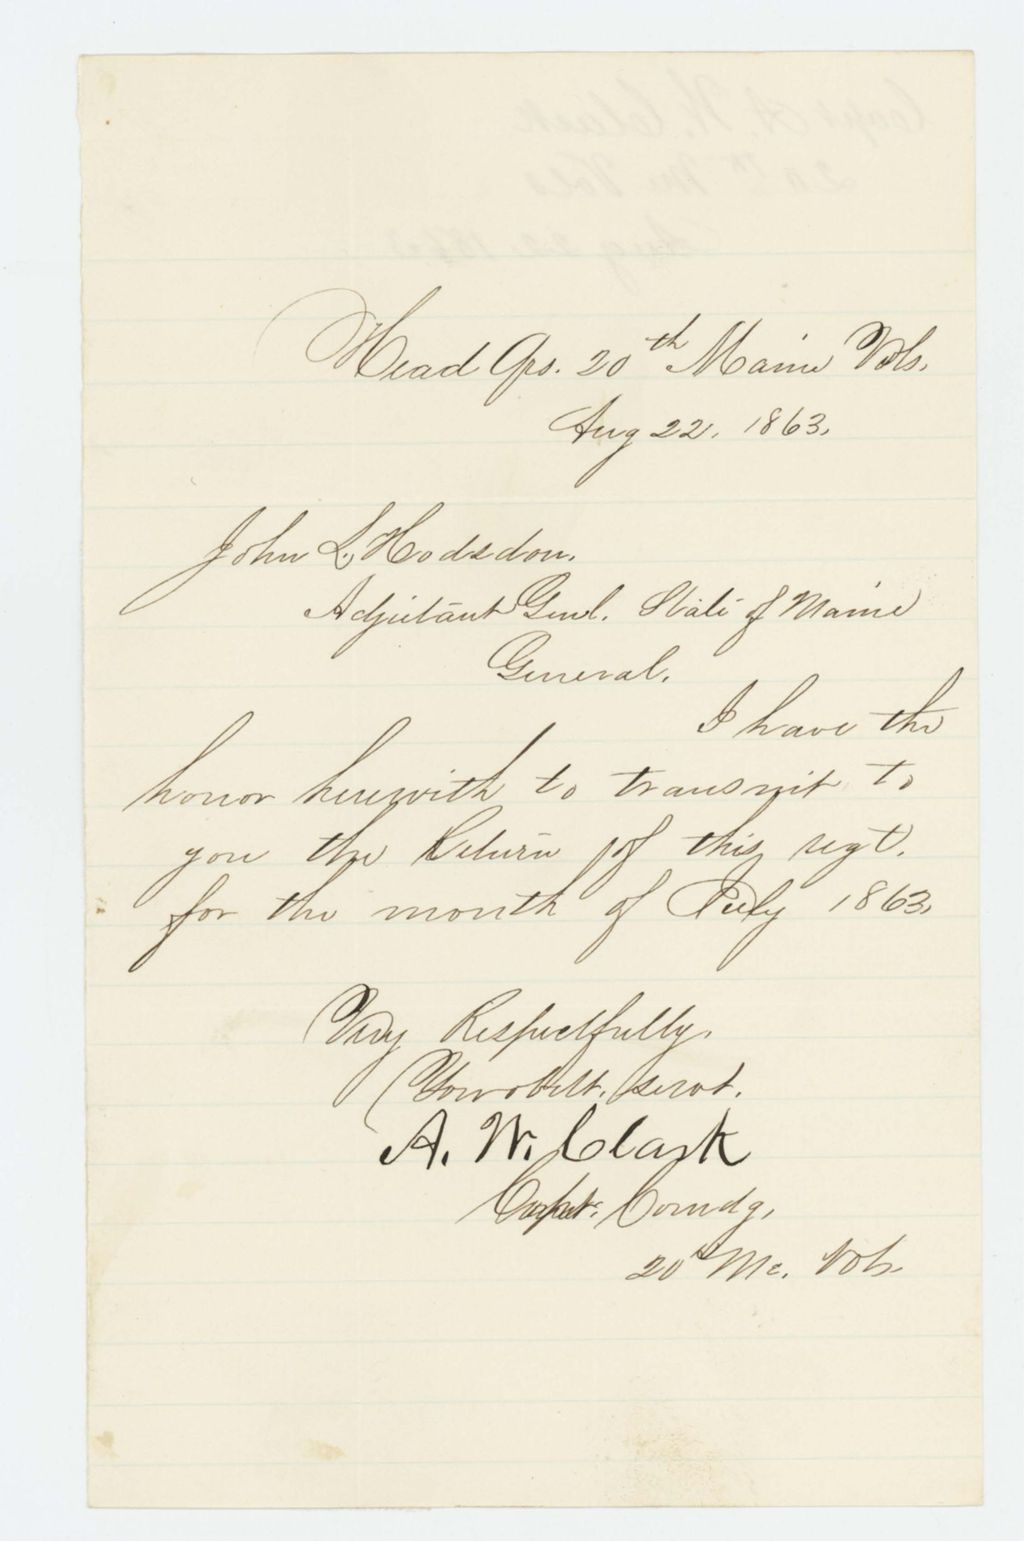 Head Qrs. 20th Maine Vols.
Aug 22. 1863.
John L. Hodsdon.
Adjutant Genl. State of Maine
General.
I have the
honor herewith to transmit to
you the Return of this regt.
for the month of July 1863.
Very Respectfully.
Your obdt. servt.
A. W. Clark
Capt. Comdg.
20th Me. Vols.